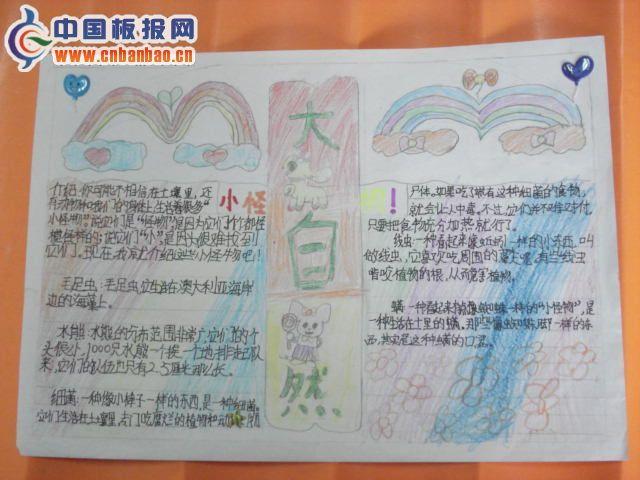 中国板报网
www.cnbanbao.cn
大自然
小怪
!
介绍:你可能不相信在土壤里,还
小怪物",说它们是"怪物",是因为它们个个都怪
模怪样的;说它们"小",是因为很难找到
它们。现在,我就介绍这些小怪物吧!
毛足虫:毛足虫,生活在澳大利亚海岸
边的海藻上。
水熊:水熊的分布范围非常广,它们的个
头很小,1000只水熊一个挨一个地排起队
来,它们的队伍也只有2.5厘米那么长。
细菌:一种像小棒子一样的东西,是一种细菌。
它们生活在土壤里,专门吃腐烂的植物和动物
尸体。如果吃了带有这种细菌的食物,
就会让人中毒。不过,它们并不难对付,
只要把食物充分加热就行了。
线虫:一种看起来像蚯蚓一样的小东西,叫
做线虫,它喜欢吃周围的
啃咬植物的根,从而危害植物。
螨:一种看起来稍像蜘蛛一样的"小怪物",是
一种生活在土里的螨,那些像蜘蛛脚一样的东
西,其实是这种螨的口器。